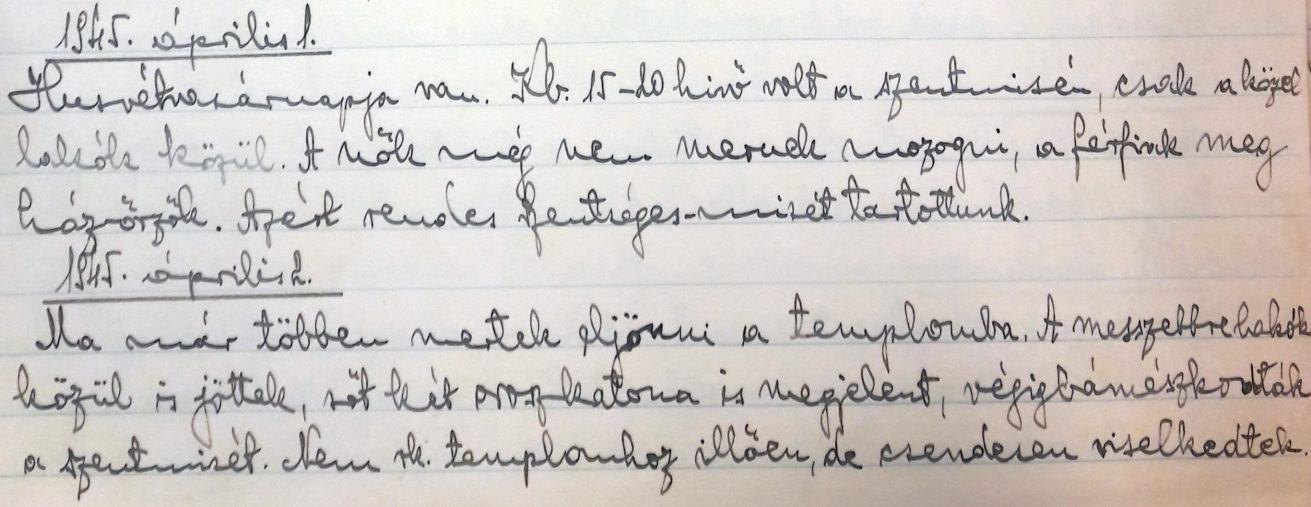 1945. április 1.
Husvétvasárnapja van. Kb. 15-20 hivő volt a szentmisén, csak a közel
lakók közül. A nők még nem mernek mozogni, a férfiak meg
ház-őrzők. Azért rendes szentséges-misét tartottunk.
1945. április 2.
Ma már többen mertek eljönni a templomba. A messzebbre lakók
közül is jöttek, sőt két orosz katona is megjelent, végigbámészkodták
a szentmisét. Nem rk. templomhoz illően, de csendesen viselkedtek.